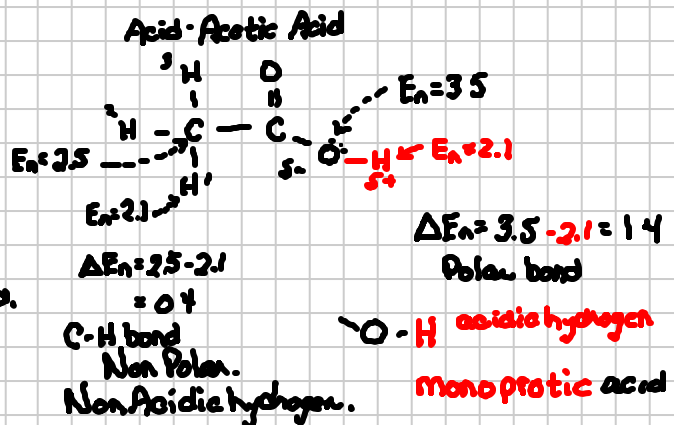 Acid - Acetic Acid
3 H O
En = 3.5
2 H - C - C
O - H En = 2.1
En = 2.5
δ- δ+
H 1
En = 2.1
ΔEn = 3.5 - 2.1 = 1.4
Polar bond
ΔEn = 2.5 - 2.1
= 0.4
C-H bond
Non Polar.
Non Acidic hydrogen.
O - H acidic hydrogen
monoprotic acid